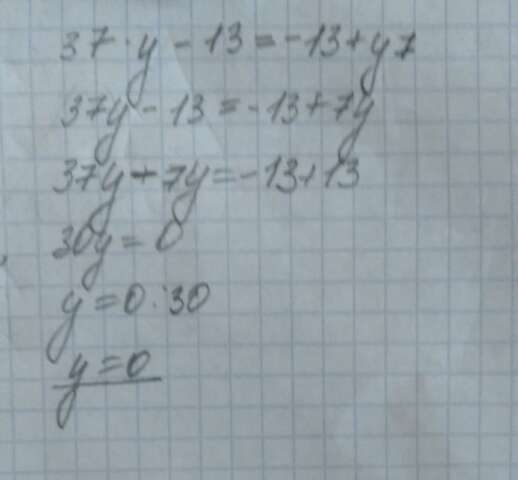 37·y - 13 = -13 + y7
37y - 13 = -13 + 7y
37y - 7y = -13 + 13
30y = 0
y = 0:30
y = 0